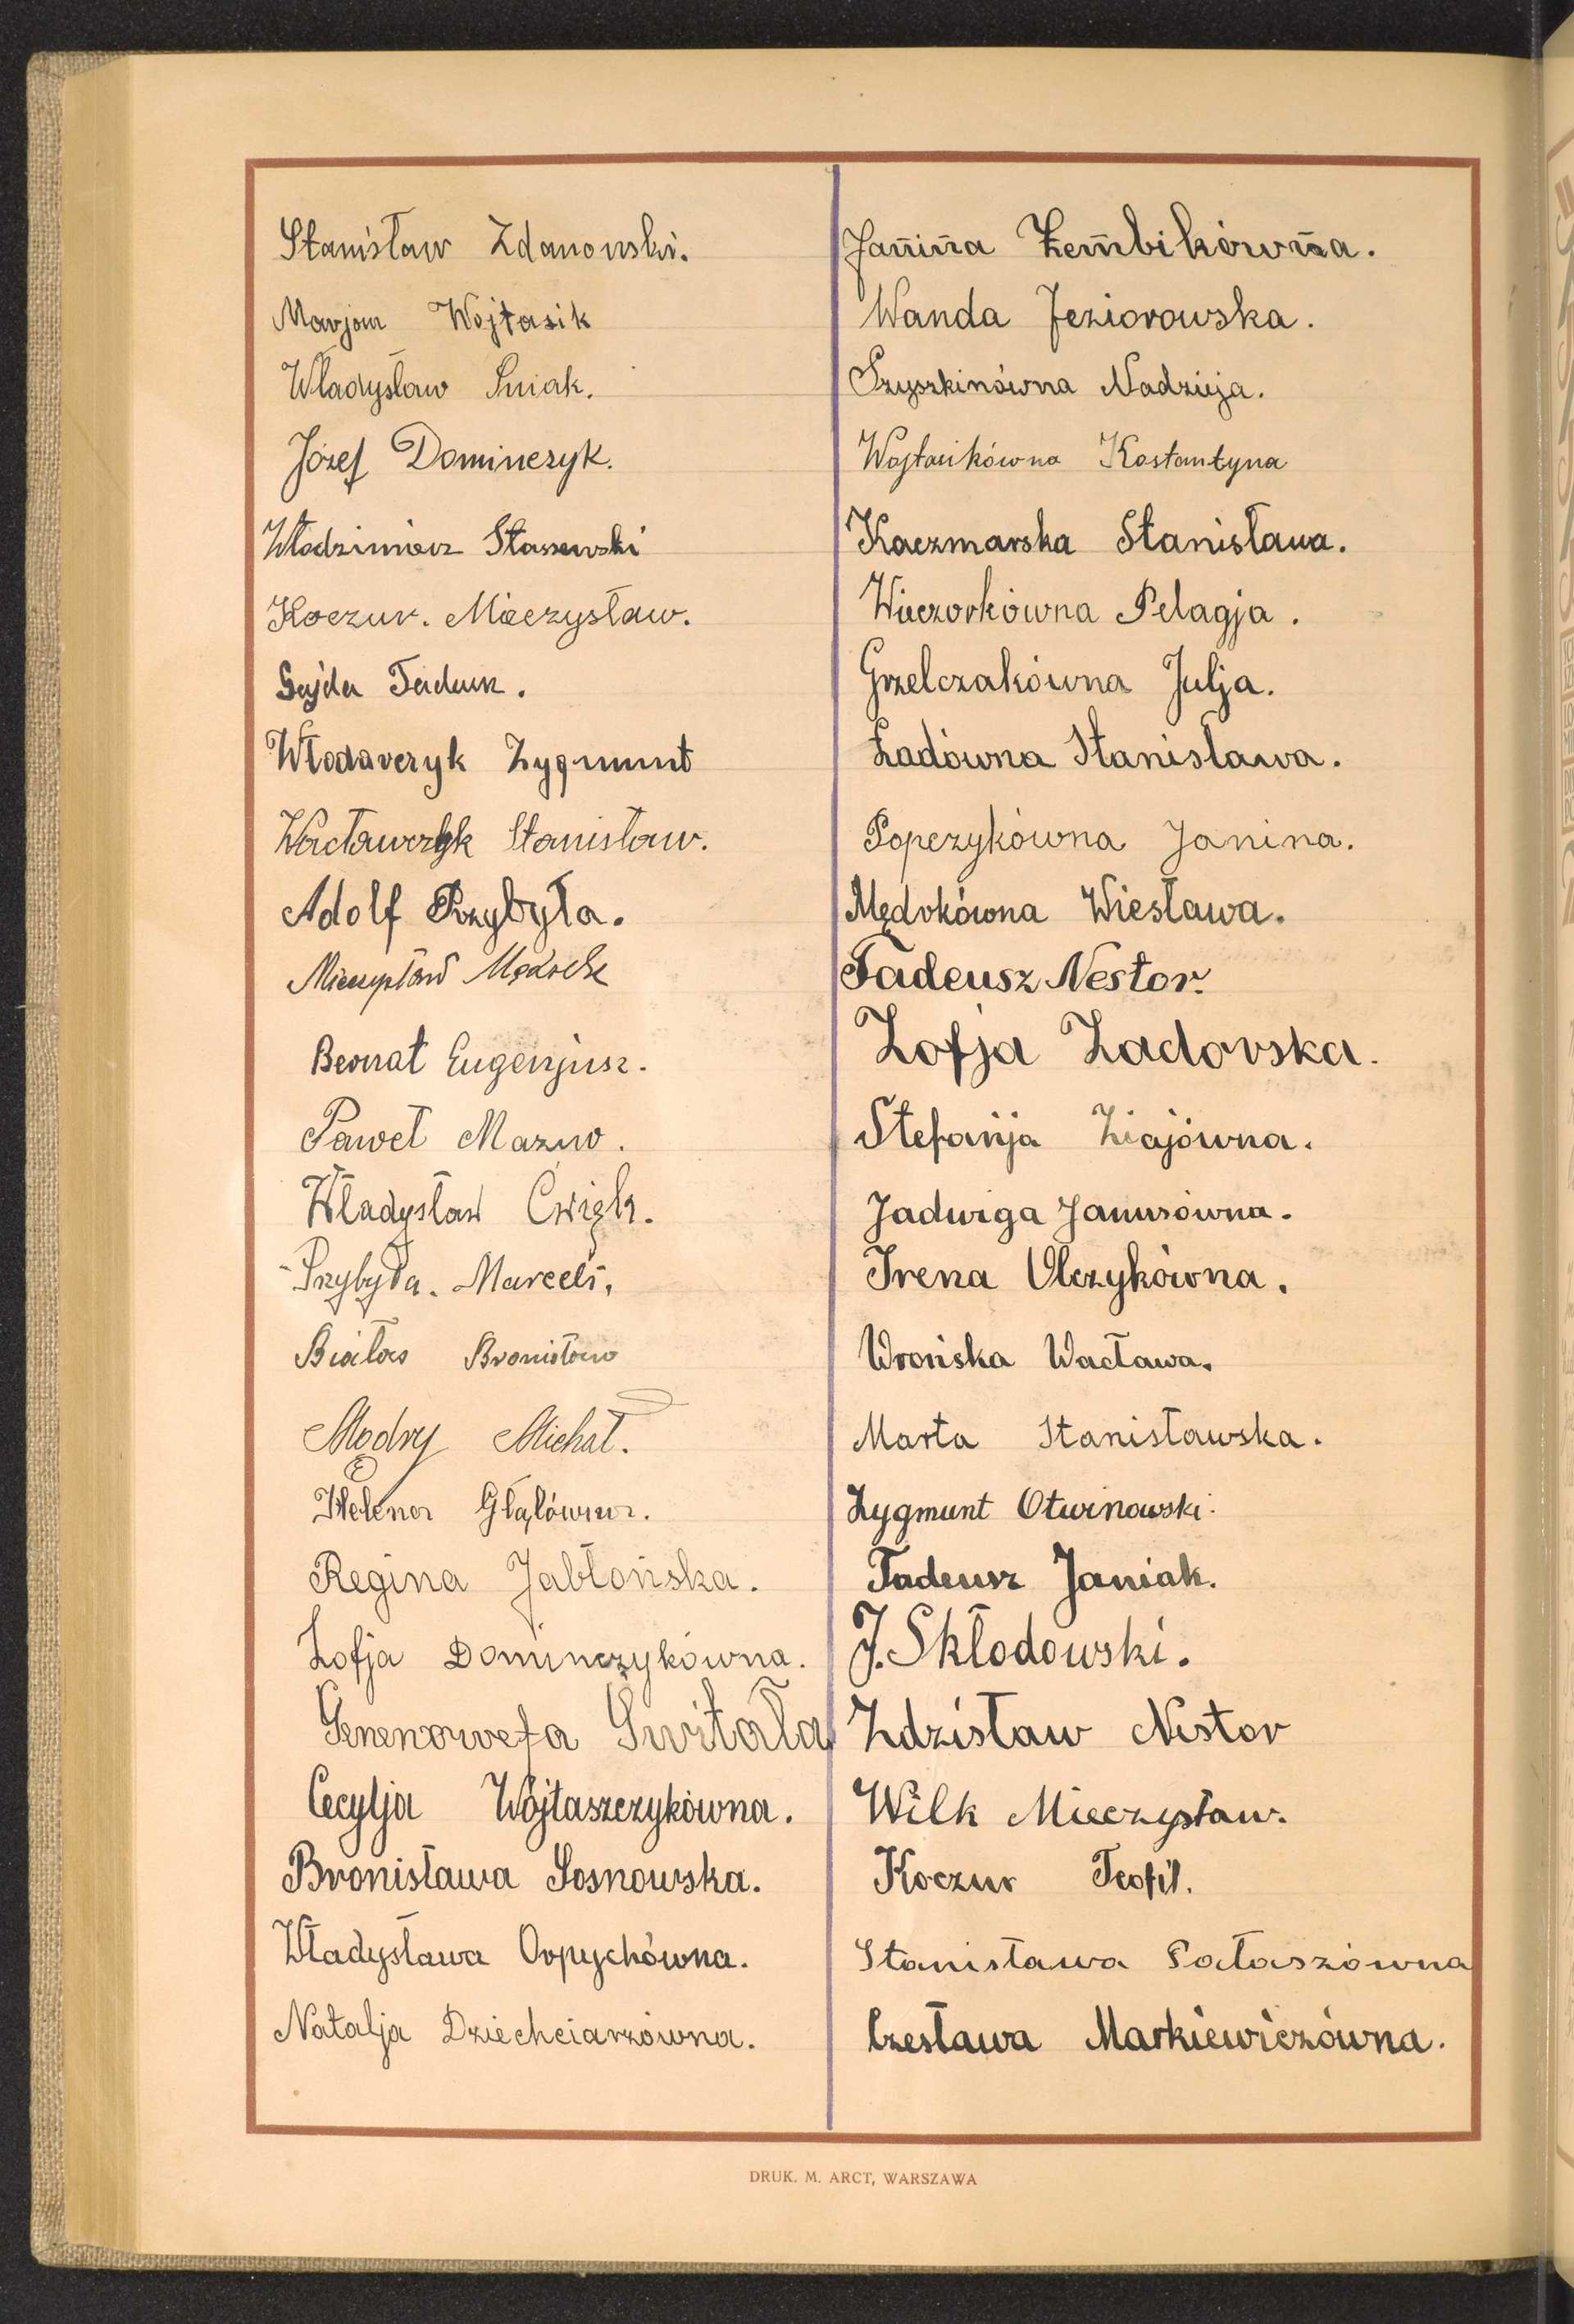 Stanisław Zdanowski.
Marjan Wojtasik
Władysław Śniak.
Józef Dominczyk.
Włodzimierz Stassewski
Koczur. Mieczysław.
Gajda
Włodarczyk Zygmunt
Wacławczyk Stanisław.
Adolf Przybyła.
Mieczysław Mędrek
Bernat Eugenjusz.
Paweł Mazur.
Władysław Ćwięk.
Przybyła. Marceli,
Białas Bronisław
Modry Michał.
Helena Głąbówna.
Regina Jabłońska.
Zofja Dominczykówna.
Genenowefa Świtała
Cecylja Wojtaszczykówna.
Bronisława Sosnowska.
Władysława Orpychówna.
Natalja Dziechciarzówna.
Janina Zembikówna.
Wanda Jeziorowska.
Szyszkinówna Nadzieja.
Wojtasikówna Kostantyna
Kaczmarska Stanisława.
Wieczorkówna Pelagja.
Grzelczakówna Julja.
Ładówna Stanisława.
Popczykówna Janina.
Mędrkówna Wiesława.
Tadeusz Nestor.
Zofja Zadorska.
Stefanja Ziajówna.
Jadwiga Janusówna.
Irena Olczykówna.
Wrońska Wacława.
Marta Stanisławska.
Zygmunt Otwinowski.
Tadeusz Janiak.
J. Skłodowski.
Zdzisław Nestor
Wilk Mieczysław.
Koczur Teofil.
Stanisława Pałaszówna
Czesława Markiewiczówna.
DRUK. M. ARCT, WARSZAWA